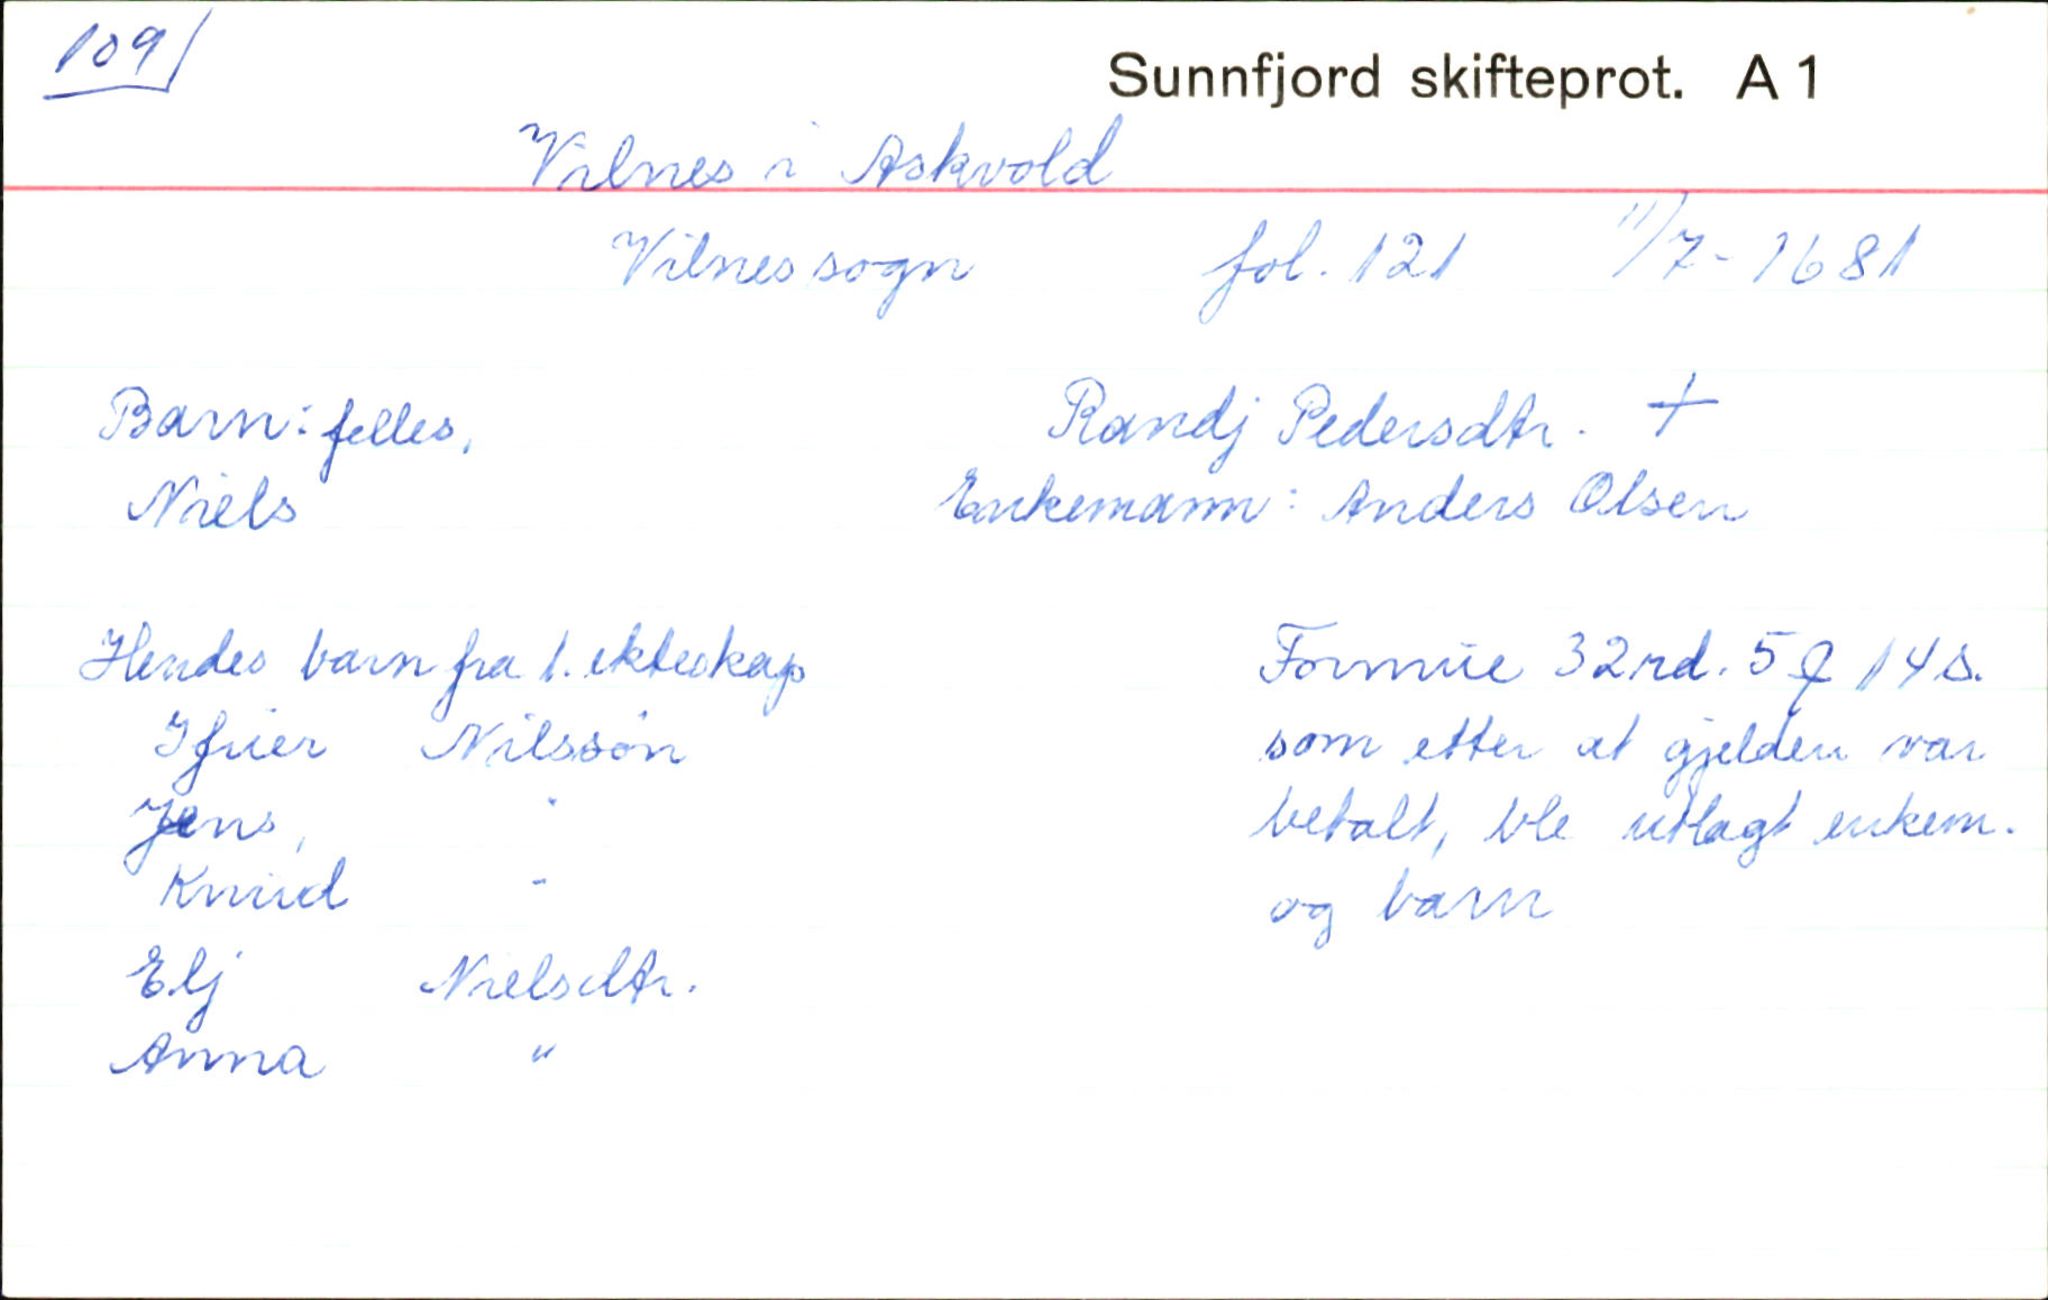 109
Sunnfjord skifteprot. A 1
Vilnes i Askvold
Vilnes sogn fol. 121 11/7-1681
Barn: felles. Randj Pedersdtr. +
Niels Enkemann: Anders Olsen
Hendes barn fra 1. ekteskap
Ifuer Nilssøn
Jens, "
Knud "
Elj Nielsdtr.
Anna "
Formue 32 rd. 5 14 s.
som etter at gjelden var
betalt, ble utlagt enkem.
og barn